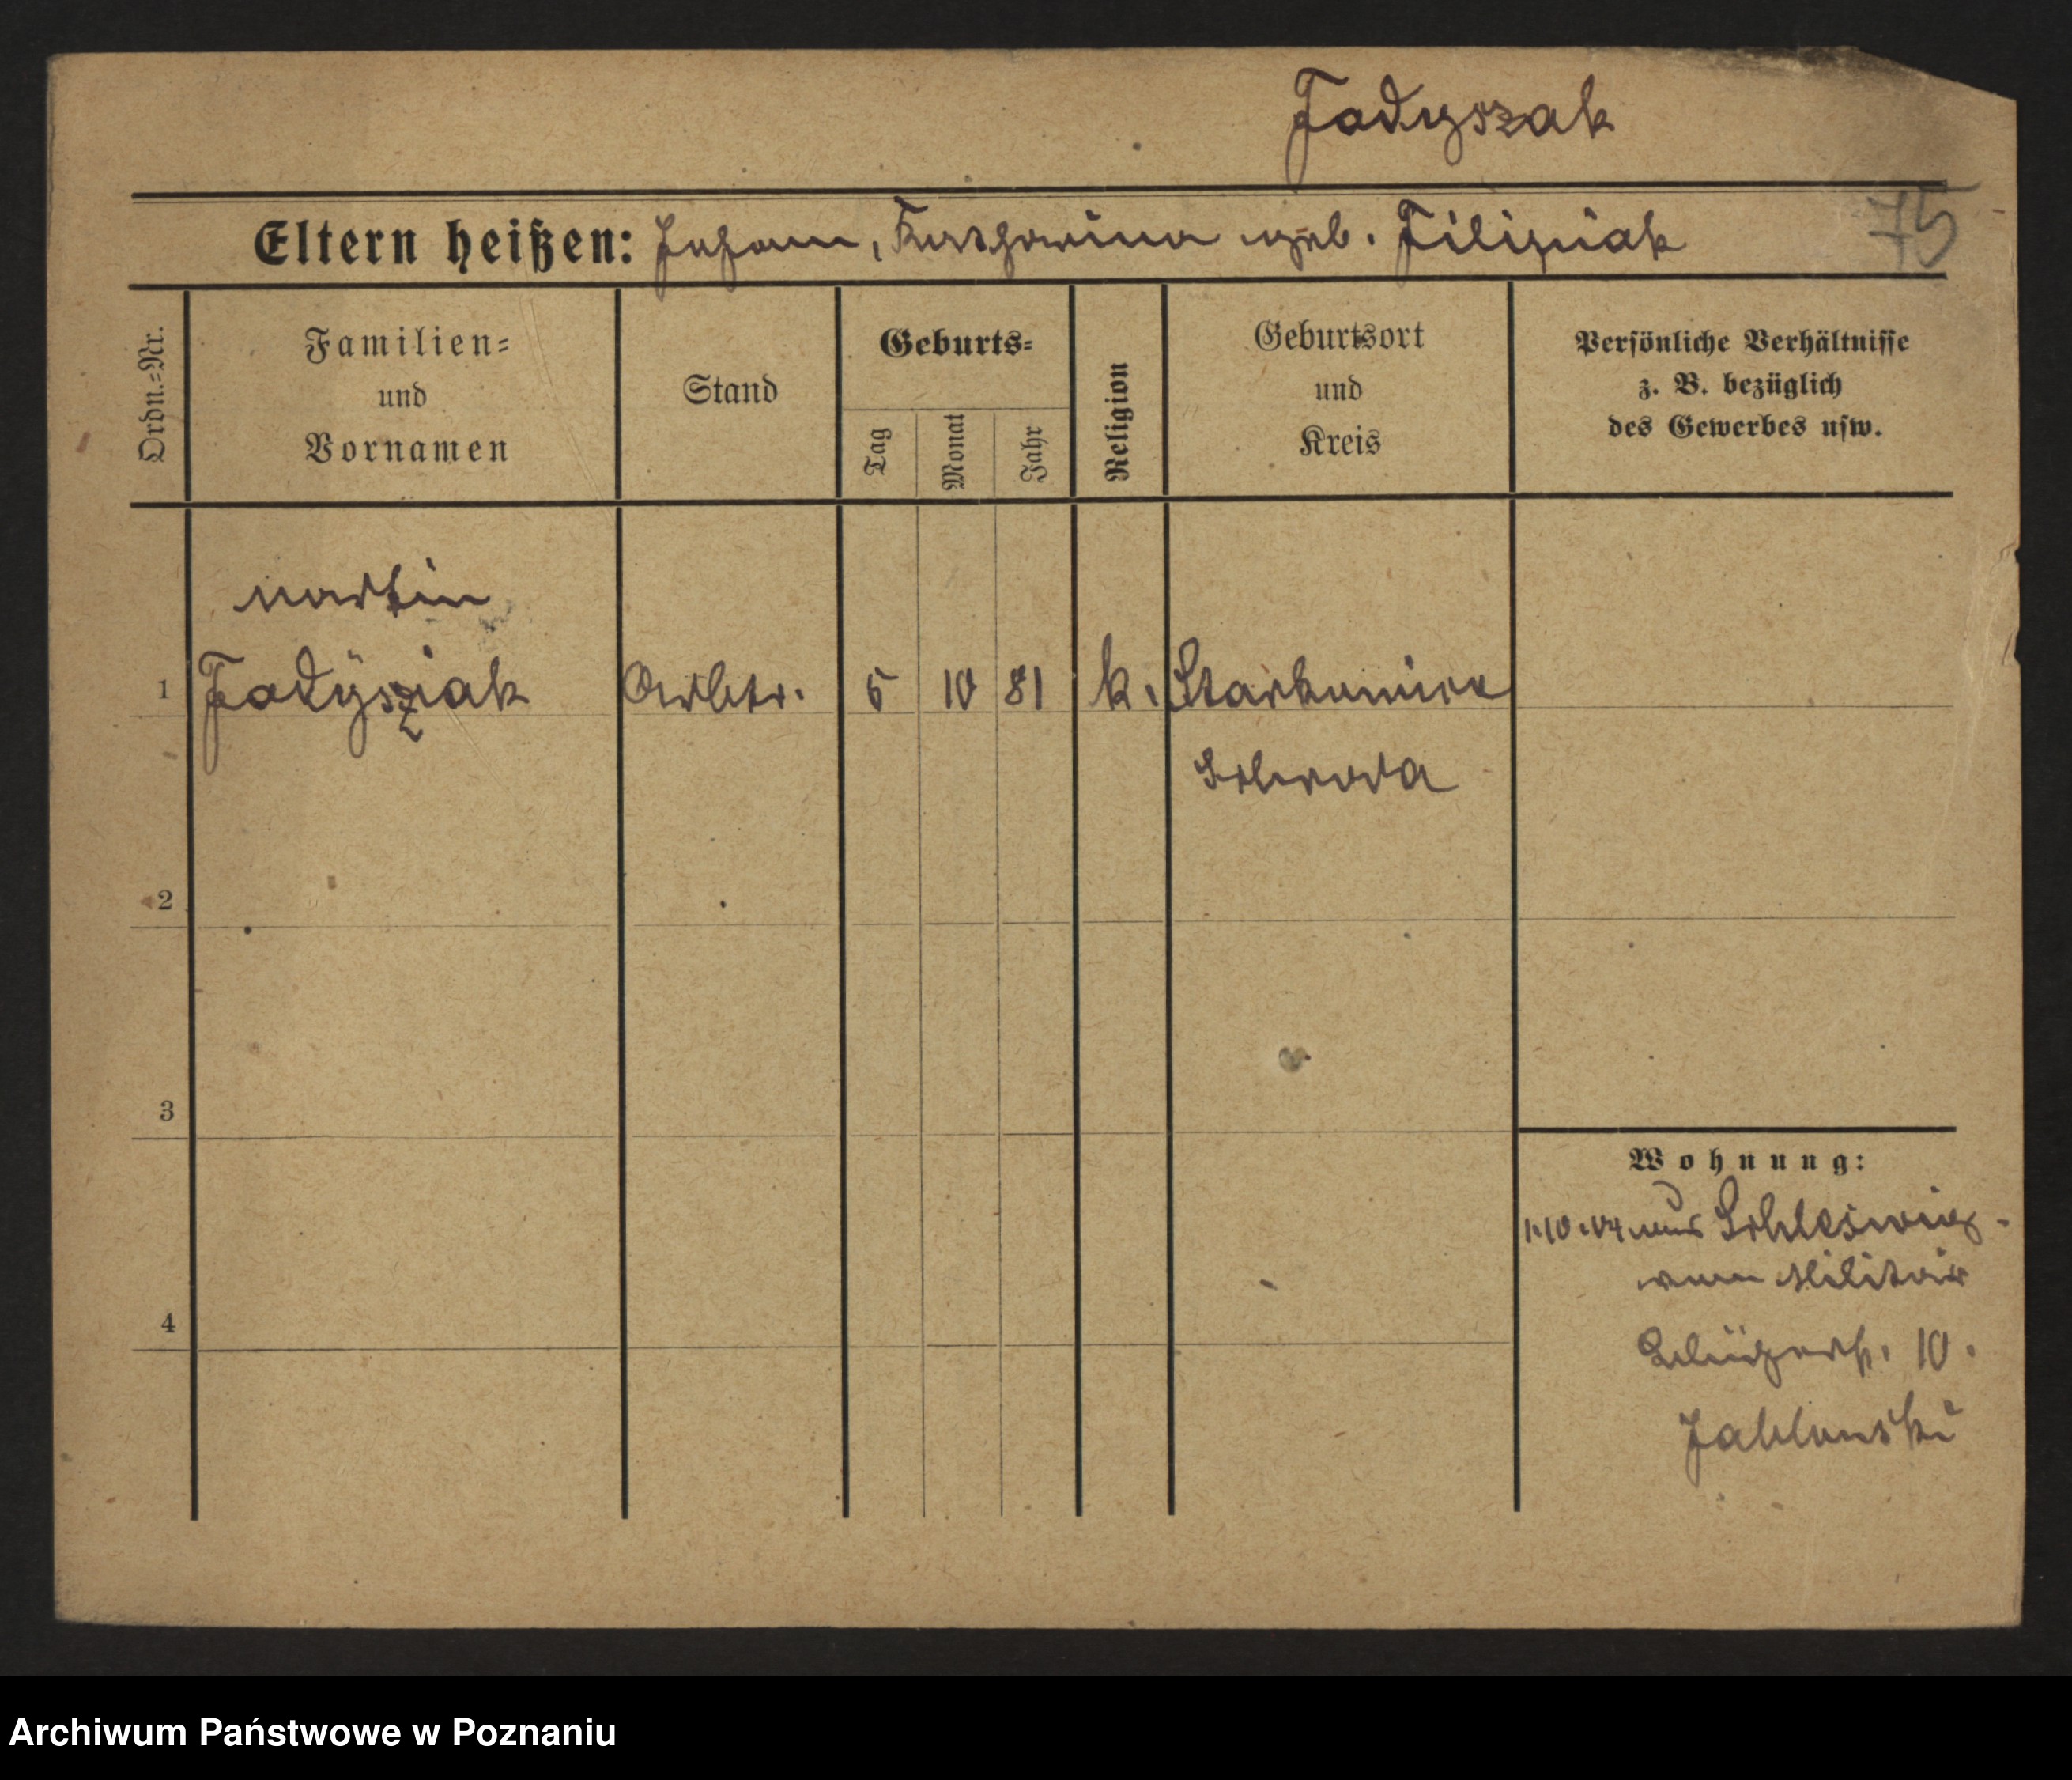 Fadyszak
Eltern heißen: Johann, Katharina geb. Filipiak
75
Ordn.=Nr.
Familien=
und
Vornamen
Stand
Geburts=
Tag
Monat
Jahr
Religion
Geburtsort
und
Kreis
Persönliche Verhältnisse
z. B. bezüglich
des Gewerbes usw.
Martin
1 Fadyszak Arbtr. 5 10 81 k. Starkowiec
Schroda
2
3
4
Wohnung:
1.10.04 aus Schleswig
vom Militär
10.
Jablonski
Archiwum Państwowe w Poznaniu